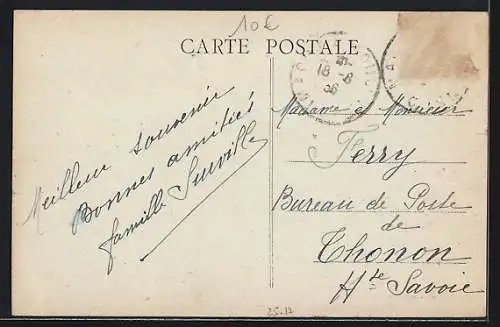 10€
CARTE POSTALE
18-8
36
Meilleur souvenir
Bonnes amitiés
famille Surville
Madame et Monsieur
Ferry
Bureau de Poste
de
Thonon
Hte Savoie
25-12